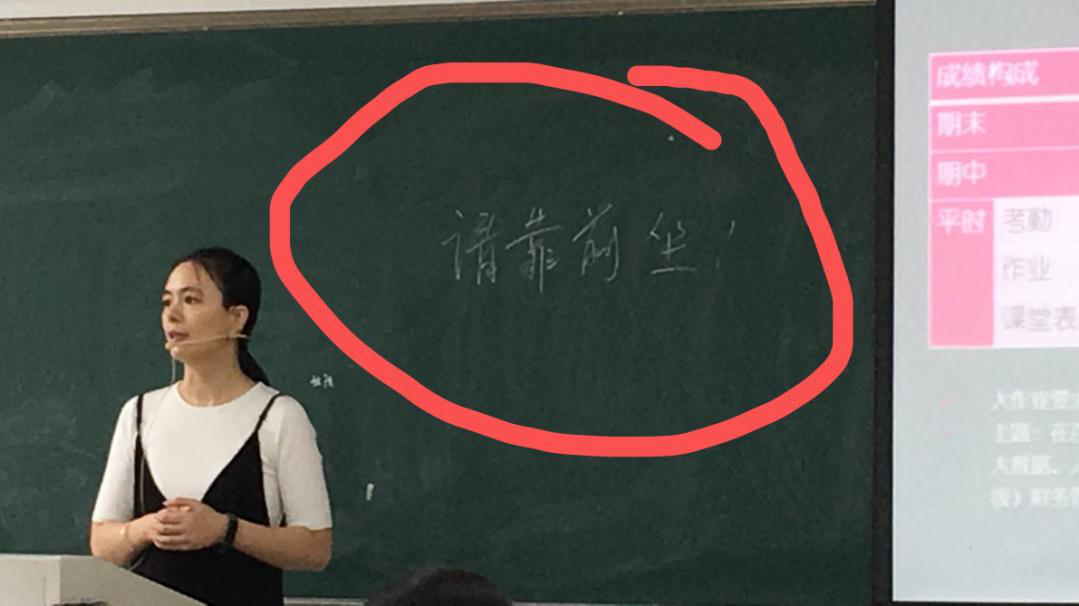 请靠前坐！
成绩构成
期末
期中
平时 考勤
作业
课堂表
大作业要
主题：在
大数据，